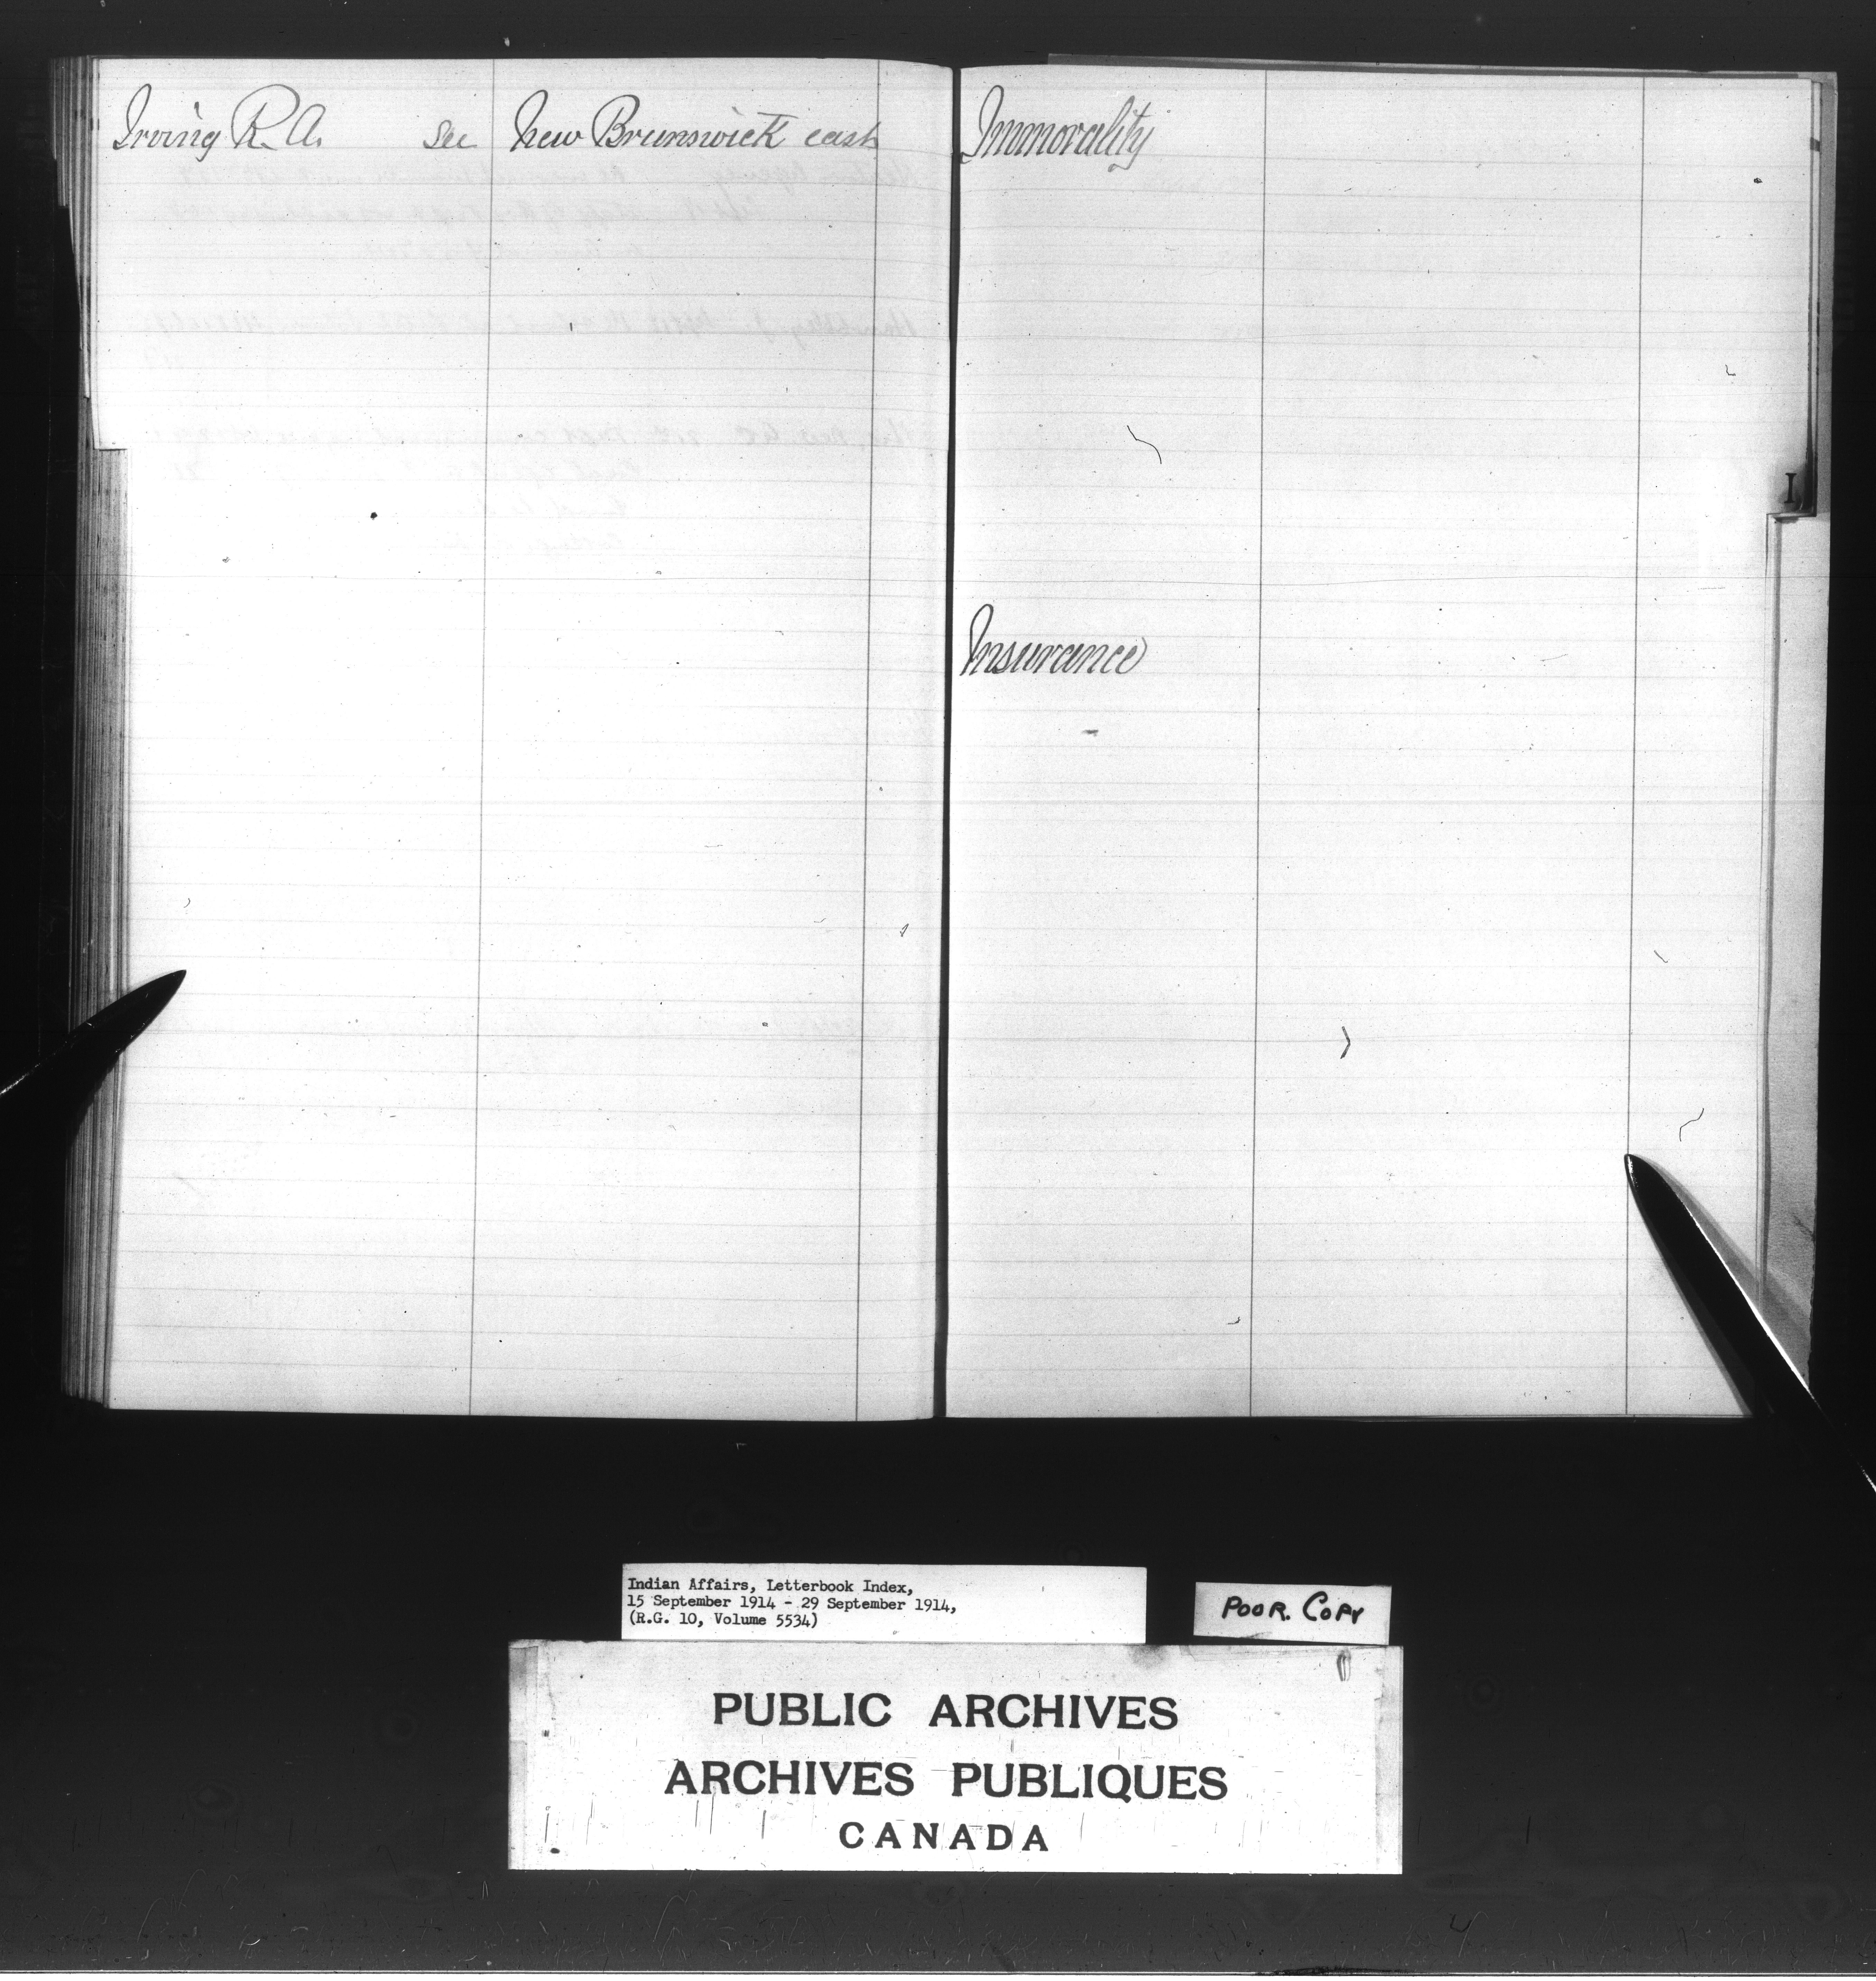 Irving R. A. see New Brunswick east
Immorality
I
Insurance
Indian Affairs, Letterbook Index,
15 September 1914 - 29 September 1914,
(R.G. 10, Volume 5534)
POOR. COPY
PUBLIC ARCHIVES
ARCHIVES PUBLIQUES
CANADA